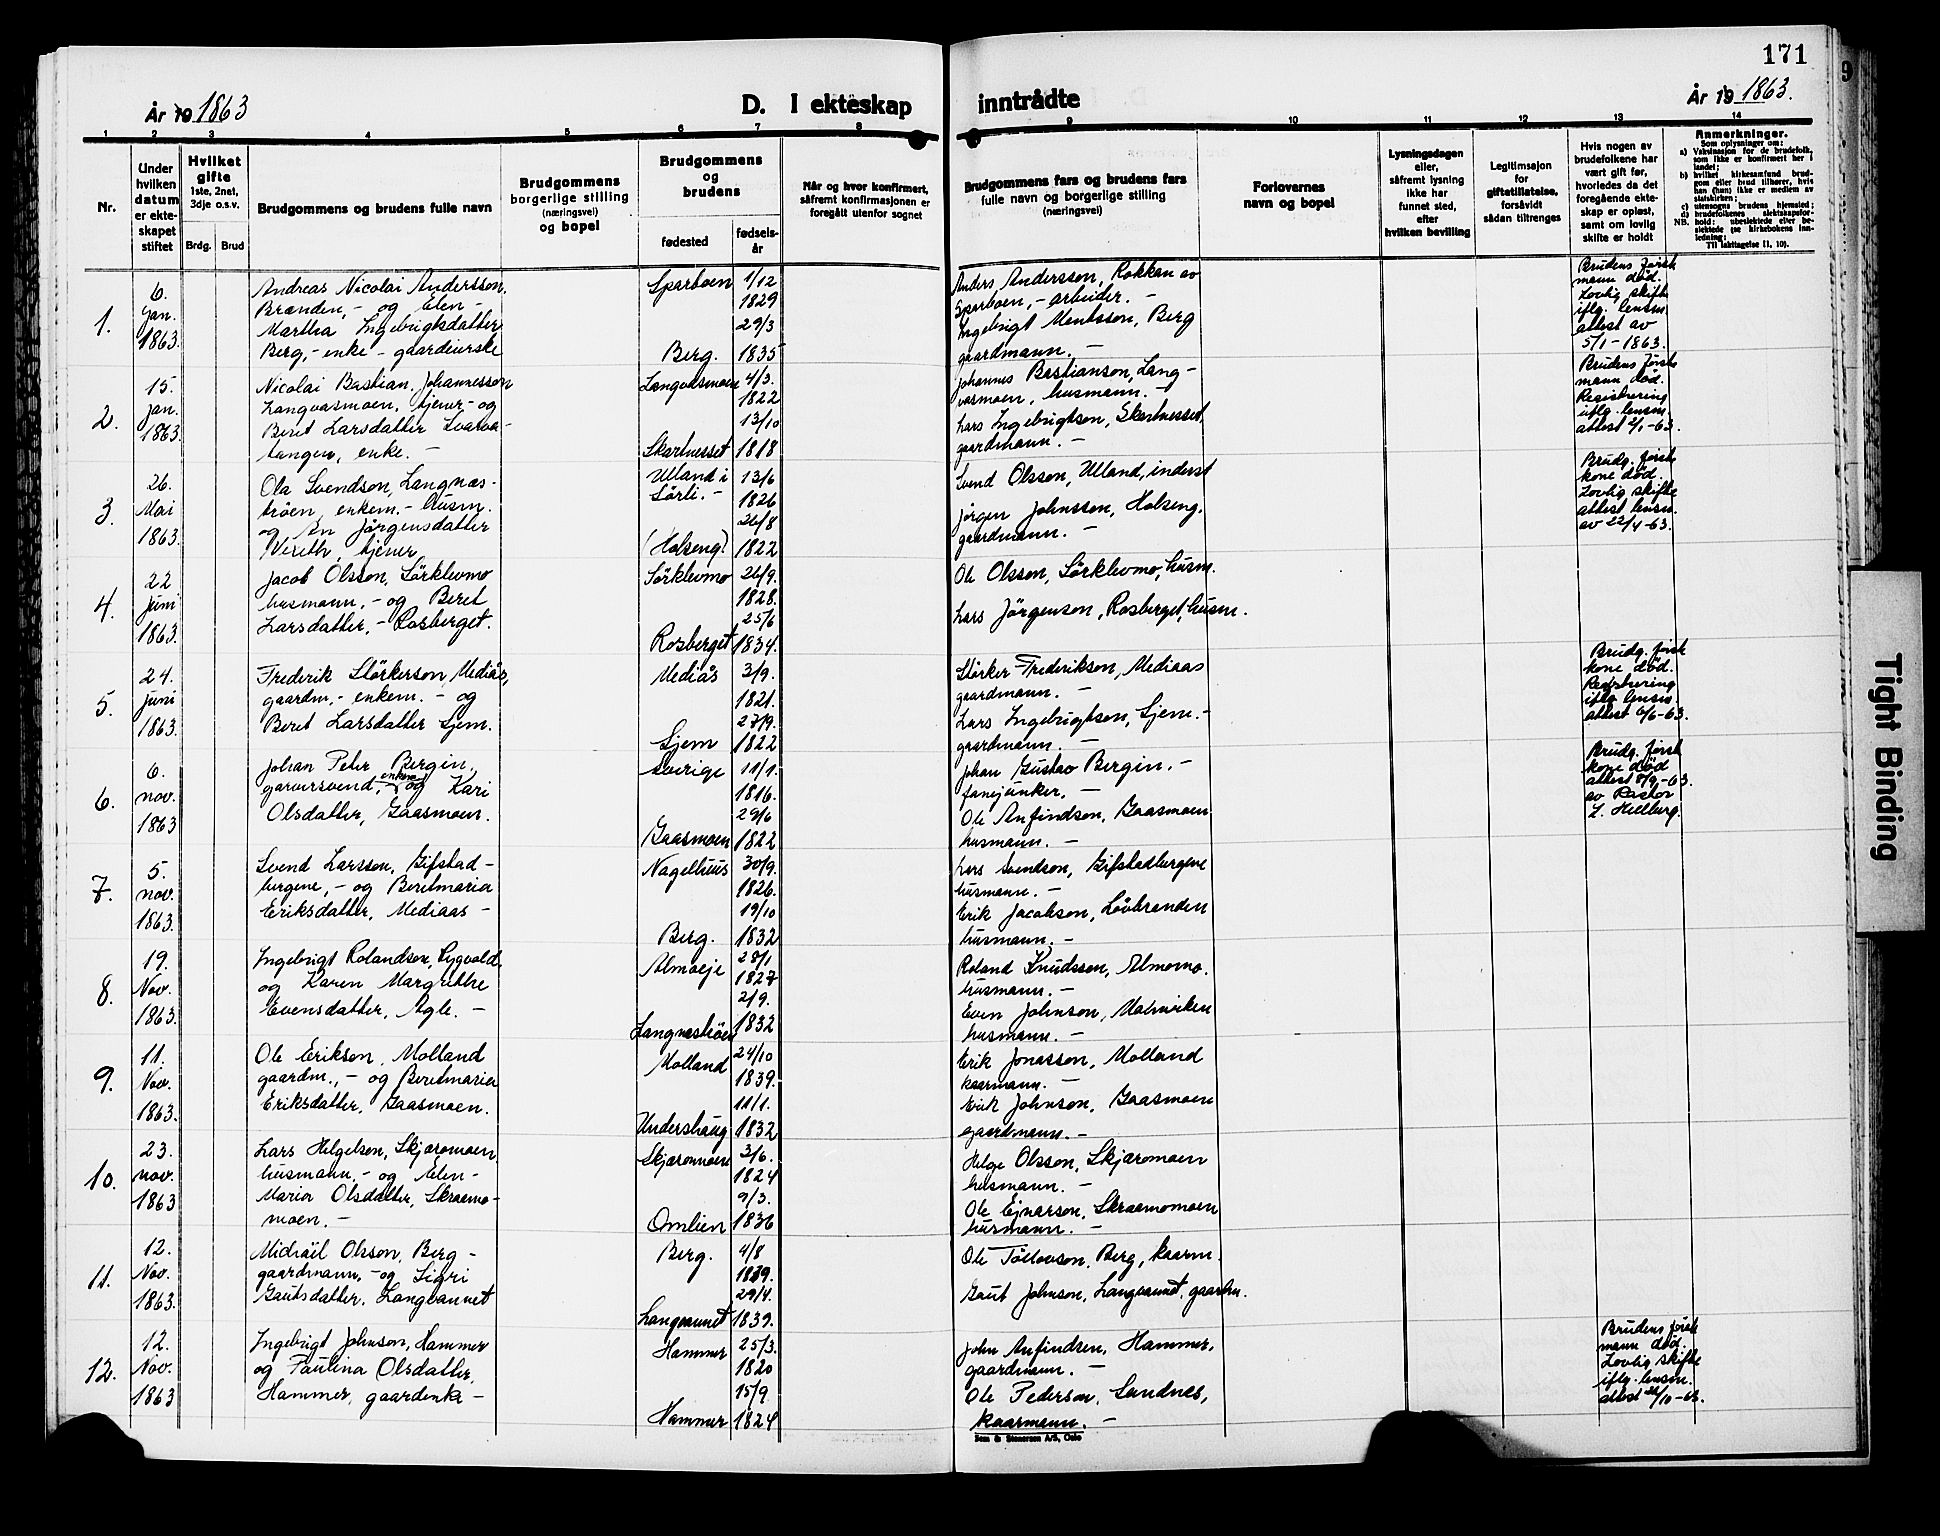 171
År 19 1863
D. I ekteskap inntrådte
År 19 1863.
1 2 3 4 5 6 7 8 9 10 11 12 13 14
Nr.
Under hvilken datum er ekteskapet stiftet
Hvilket gifte
1ste, 2net, 3dje o.s.v.
Brdg. Brud
Brudgommens og brudens fulle navn
Brudgommens borgerlige stilling (næringsvei) og bopel
Brudgommens og brudens
fødested
fødselsår
Når og hvor konfirmert, såfremt konfirmasjonen er foregått utenfor sognet
Brudgommens fars og brudens fars fulle navn og borgerlige stilling (næringsvei)
Forlovernes navn og bopel
Lysningsdagen eller, såfremt lysning ikke har funnet sted, efter hvilken bevilling
Legitimasjon for giftetillatelse, forsåvidt sådan tiltrenges
Hvis nogen av brudefolkene har vært gift før, hvorledes da det foregående ekteskap er opløst, samt om lovlig skifte er holdt
Anmerkninger.
Som oplysninger om:
a) Vaksinasjon for de brudefolk, som ikke er konfirmert her i landet;
b) hvilket kirkesamfund brudgom eller brud tilhører, hvis han (hun) ikke er medlem av statskirken;
c) utensogns brudens hjemsted;
d) brudefolkenes slektskapsforhold: ubeslektede eller beslektede (se kirkebokens innledning:
NB. Til iakttagelse II, 10).
1.
6.
Jan.
1863.
Andreas Nicolai Andersson,
Brænden, - og Elen -
Martha Ingebrigtsdatter
Berg, - enke - gaardeierske
Sparboen 1/12
1829
29/3
Berg. 1835
Anders Andersson, Rokkan av
Sparboen, - arbeider. -
Ingebrigt Mentsson, Berg
gaardmann. -
Brudens først
mann død.
Lovlig skifte
iflg. lensm.
attest av
5/1 - 1863.
2.
15.
Jan.
1863.
Nicolai Bastian Johannesson
Langvasmoen, tjener - og
Beret Larsdatter
tangen, enke. -
Langvasmoen 4/3.
1822
13/10
Skartnesset 1818
Johannes Bastianson, Lang-
vasmoen, husmann. -
Lars Ingebrigtson, Skartnesset,
gaardmann. -
Brudens først
mann død.
Registrering
iflg. lensm.
attest -63.
3.
26.
Mai
1863.
Ola Svendson, Langnæs-
trøen, enkem. - husm.
og An Jørgensdatter
Vereth, tjener
Ulland i 13/6
Sørli. - 1826
26/8
(Holseng) 1822
Svend Olsson, Ulland, inderst
Jørgen Johnsson, Holseng,
gaardmann. -
Brudg. først
kone død.
Lovlig skifte
attest lensm.
av 22/4 -63.
4.
22
Juni
1863.
Jacob Olsson, Sørklevmo
husmann, - og Beret
Larsdatter, - Rosberget.
Sørklevmo 26/9.
1828.
25/6
Rosberget 1834.
Ole Olsson, Sørklevmo, husm.
Lars Jørgenson, Rosberget, husm.
5.
24.
Juni
1863.
Frederik Størkerson, Mediås,
gaardm, - enkem. - og
Beret Larsdatter Sjem.
Mediås 3/9.
1821.
27/9.
Sjem 1822
Størker Frederikson, Mediaas
gaardmann. -
Lars Ingebrigtson, Sjem. -
gaardmann. -
Brudg. først
kone død.
Registrering
iflg. lensm.
attest 6/6-63.
6.
6.
nov.
1863
Johan Peter Bergin,
garversvend, enkem. - og Kari
Olsdatter, Gaasmoen.
Sverige 11/1.
1816.
29/6
Gaasmoen 1822
Johan Gustav Bergin. -
fanejunker, -
Ole Anfindson, Gaasmoen
husmann. -
Brudg. først
kone død
attest 8/9-63.
av Pastor
L. Hellberg.
7.
5.
nov.
1863
Svend Larsson, Gifstad-
burgene, - og Beretmaria
Eriksdatter, Mediaas -
Nagelhuus 30/9.
1826.
19/10
Berg. 1832
Lars Svendson, Gifstadburgene
husmann. -
Erik Jacobson, Løvbranden
husmann. -
8.
19.
Nov.
1863.
Ingebrigt Rolandson, Rygvold.
og Karen Margrethe
Evensdatter, Agle. -
Almoeje 28/1
1827
2/9.
Langnæstrøen 1832
Roland Knudsson, Almomo.
husmann. -
Even Johnson, Malmviken
husmann. -
9.
11.
Nov.
1863.
Ole Erikson, Molland
gaardm., - og Beretmaria
Eriksdatter, Gaasmoen.
Molland 24/10
1839.
11/1.
Undershaug 1832
Erik Jonasson, Molland
kaarmann. -
Erik Johnson, Gaasmoen
gaardmann. -
10.
23.
nov.
1863
Lars Helgeson, Skjæromoen,
husmann, - og Elen -
Maria Olsdatter, Skraemo-
moen. -
Skjæromoen 3/6.
1824
9/3.
Omlien 1836
Helge Olsson, Skjæromoen
husmann. -
Ole Ejnarson, Skraemomoen
husmann. -
11.
12.
Nov.
1863.
Michael Olsson, Berg -
gaardmann, - og Sigri
Gautsdatter, Langvannet
Berg. 4/8
1839.
29/4.
Langvannet 1839.
Ole Tollevson, Berg, kaarm.
Gaut Johnson, Langvannet, gaardm.
12.
12.
Nov.
1863
Ingebrigt Johnson, Hammer
og Paulina Olsdatter,
Hammer, gaardenke -
Hammer 25/3.
1820
15/9.
Hammer 1824
John Anfindsen, Hammer,
gaardmann. -
Ole Pederson, Sandnes,
kaarmann. -
Brudens først
mann død.
Lovlig skifte
iflg. lensm.
attest /10-63.
Sem & Stenersen A/S, Oslo
Tight Binding
9